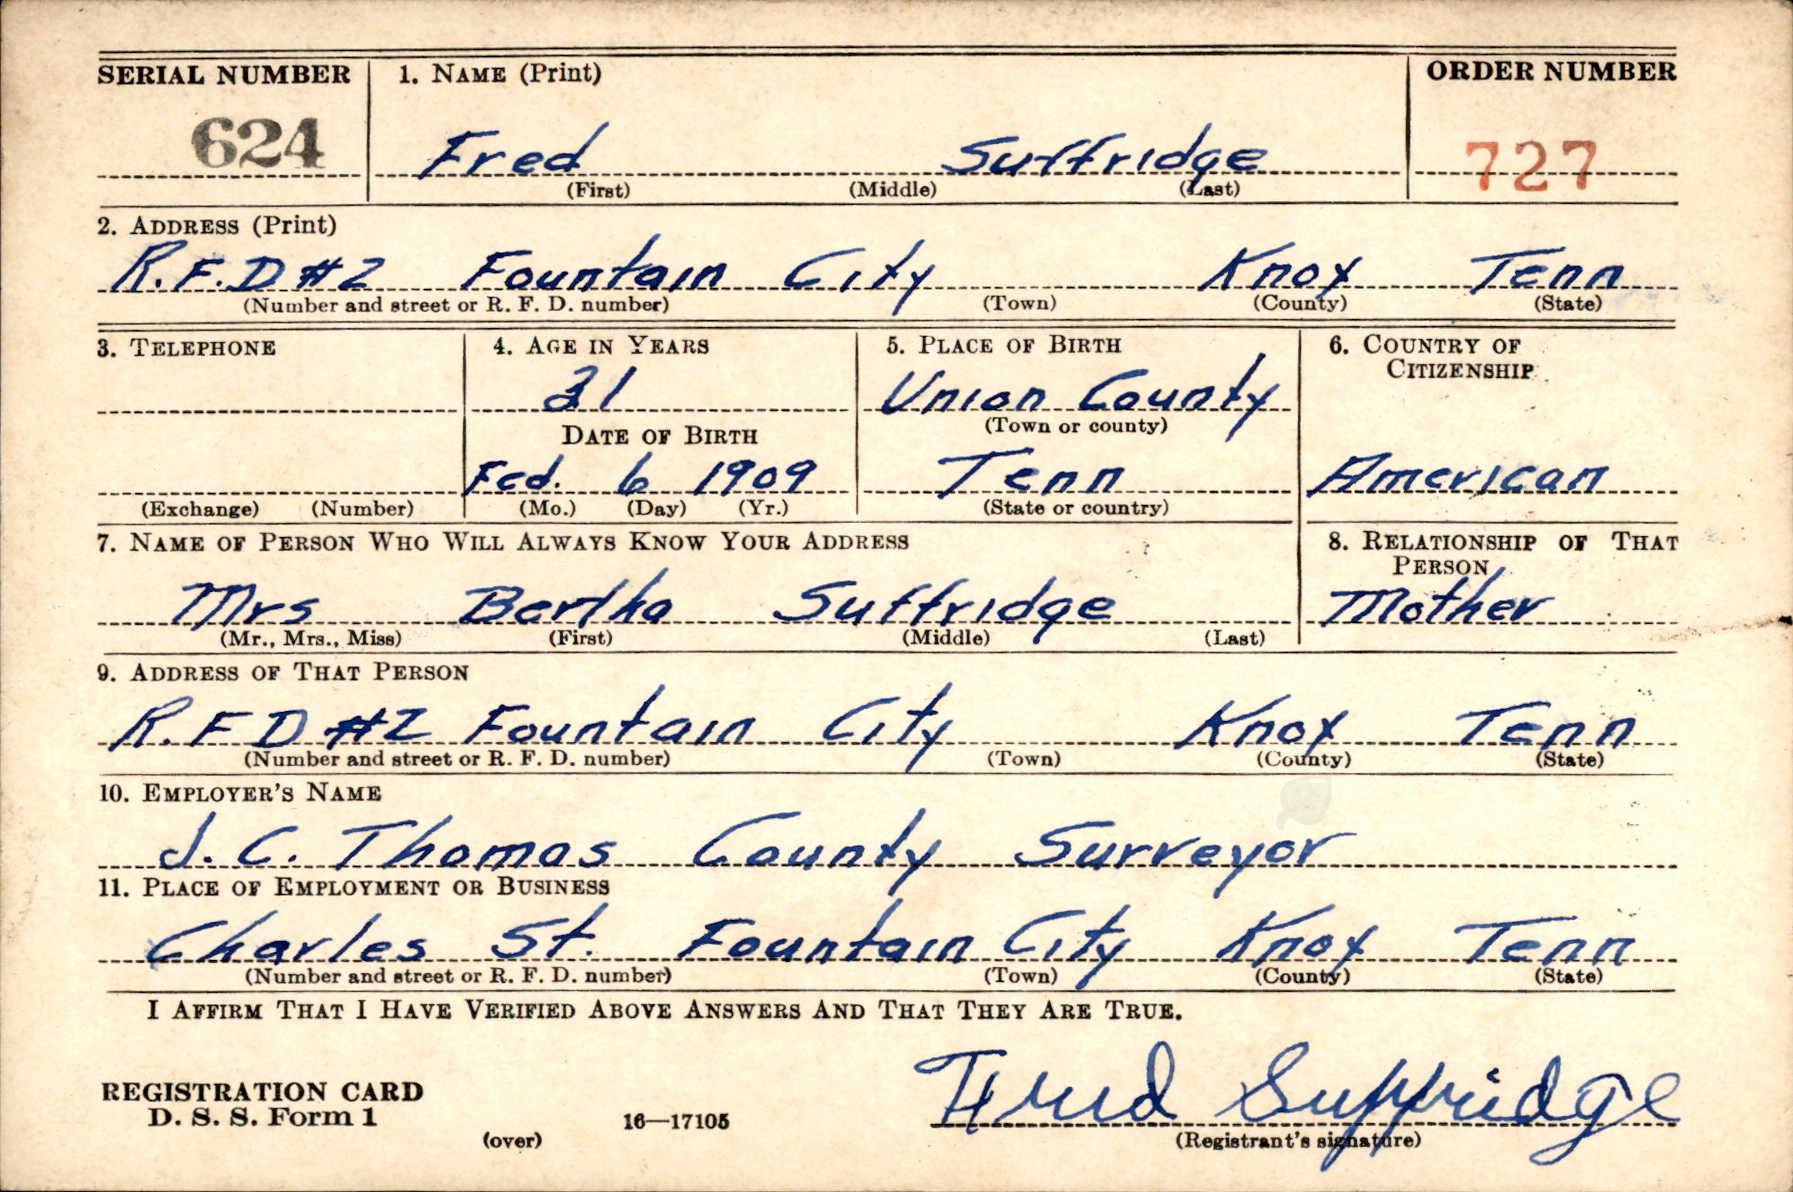 SERIAL NUMBER 1. NAME (Print) ORDER NUMBER
624 Fred Suffridge 727
(First) (Middle) (Last)
2. ADDRESS (Print)
R.F.D #2 Fountain City Knox Tenn
(Number and street or R. F. D. number) (Town) (County) (State)
3. TELEPHONE 4. AGE IN YEARS 5. PLACE OF BIRTH 6. COUNTRY OF CITIZENSHIP
31 Union County
DATE OF BIRTH (Town or county)
Feb. 6 1909 Tenn American
(Exchange) (Number) (Mo.) (Day) (Yr.) (State or country)
7. NAME OF PERSON WHO WILL ALWAYS KNOW YOUR ADDRESS 8. RELATIONSHIP OF THAT PERSON
Mrs Bertha Suffridge Mother
(Mr., Mrs., Miss) (First) (Middle) (Last)
9. ADDRESS OF THAT PERSON
R.F D #2 Fountain City Knox Tenn
(Number and street or R. F. D. number) (Town) (County) (State)
10. EMPLOYER'S NAME
J. C. Thomas County Surveyor
11. PLACE OF EMPLOYMENT OR BUSINESS
Charles St. Fountain City Knox Tenn
(Number and street or R. F. D. number) (Town) (County) (State)
I AFFIRM THAT I HAVE VERIFIED ABOVE ANSWERS AND THAT THEY ARE TRUE.
Fred Suffridge
REGISTRATION CARD
D. S. S. Form 1 16—17105
(over) (Registrant's signature)